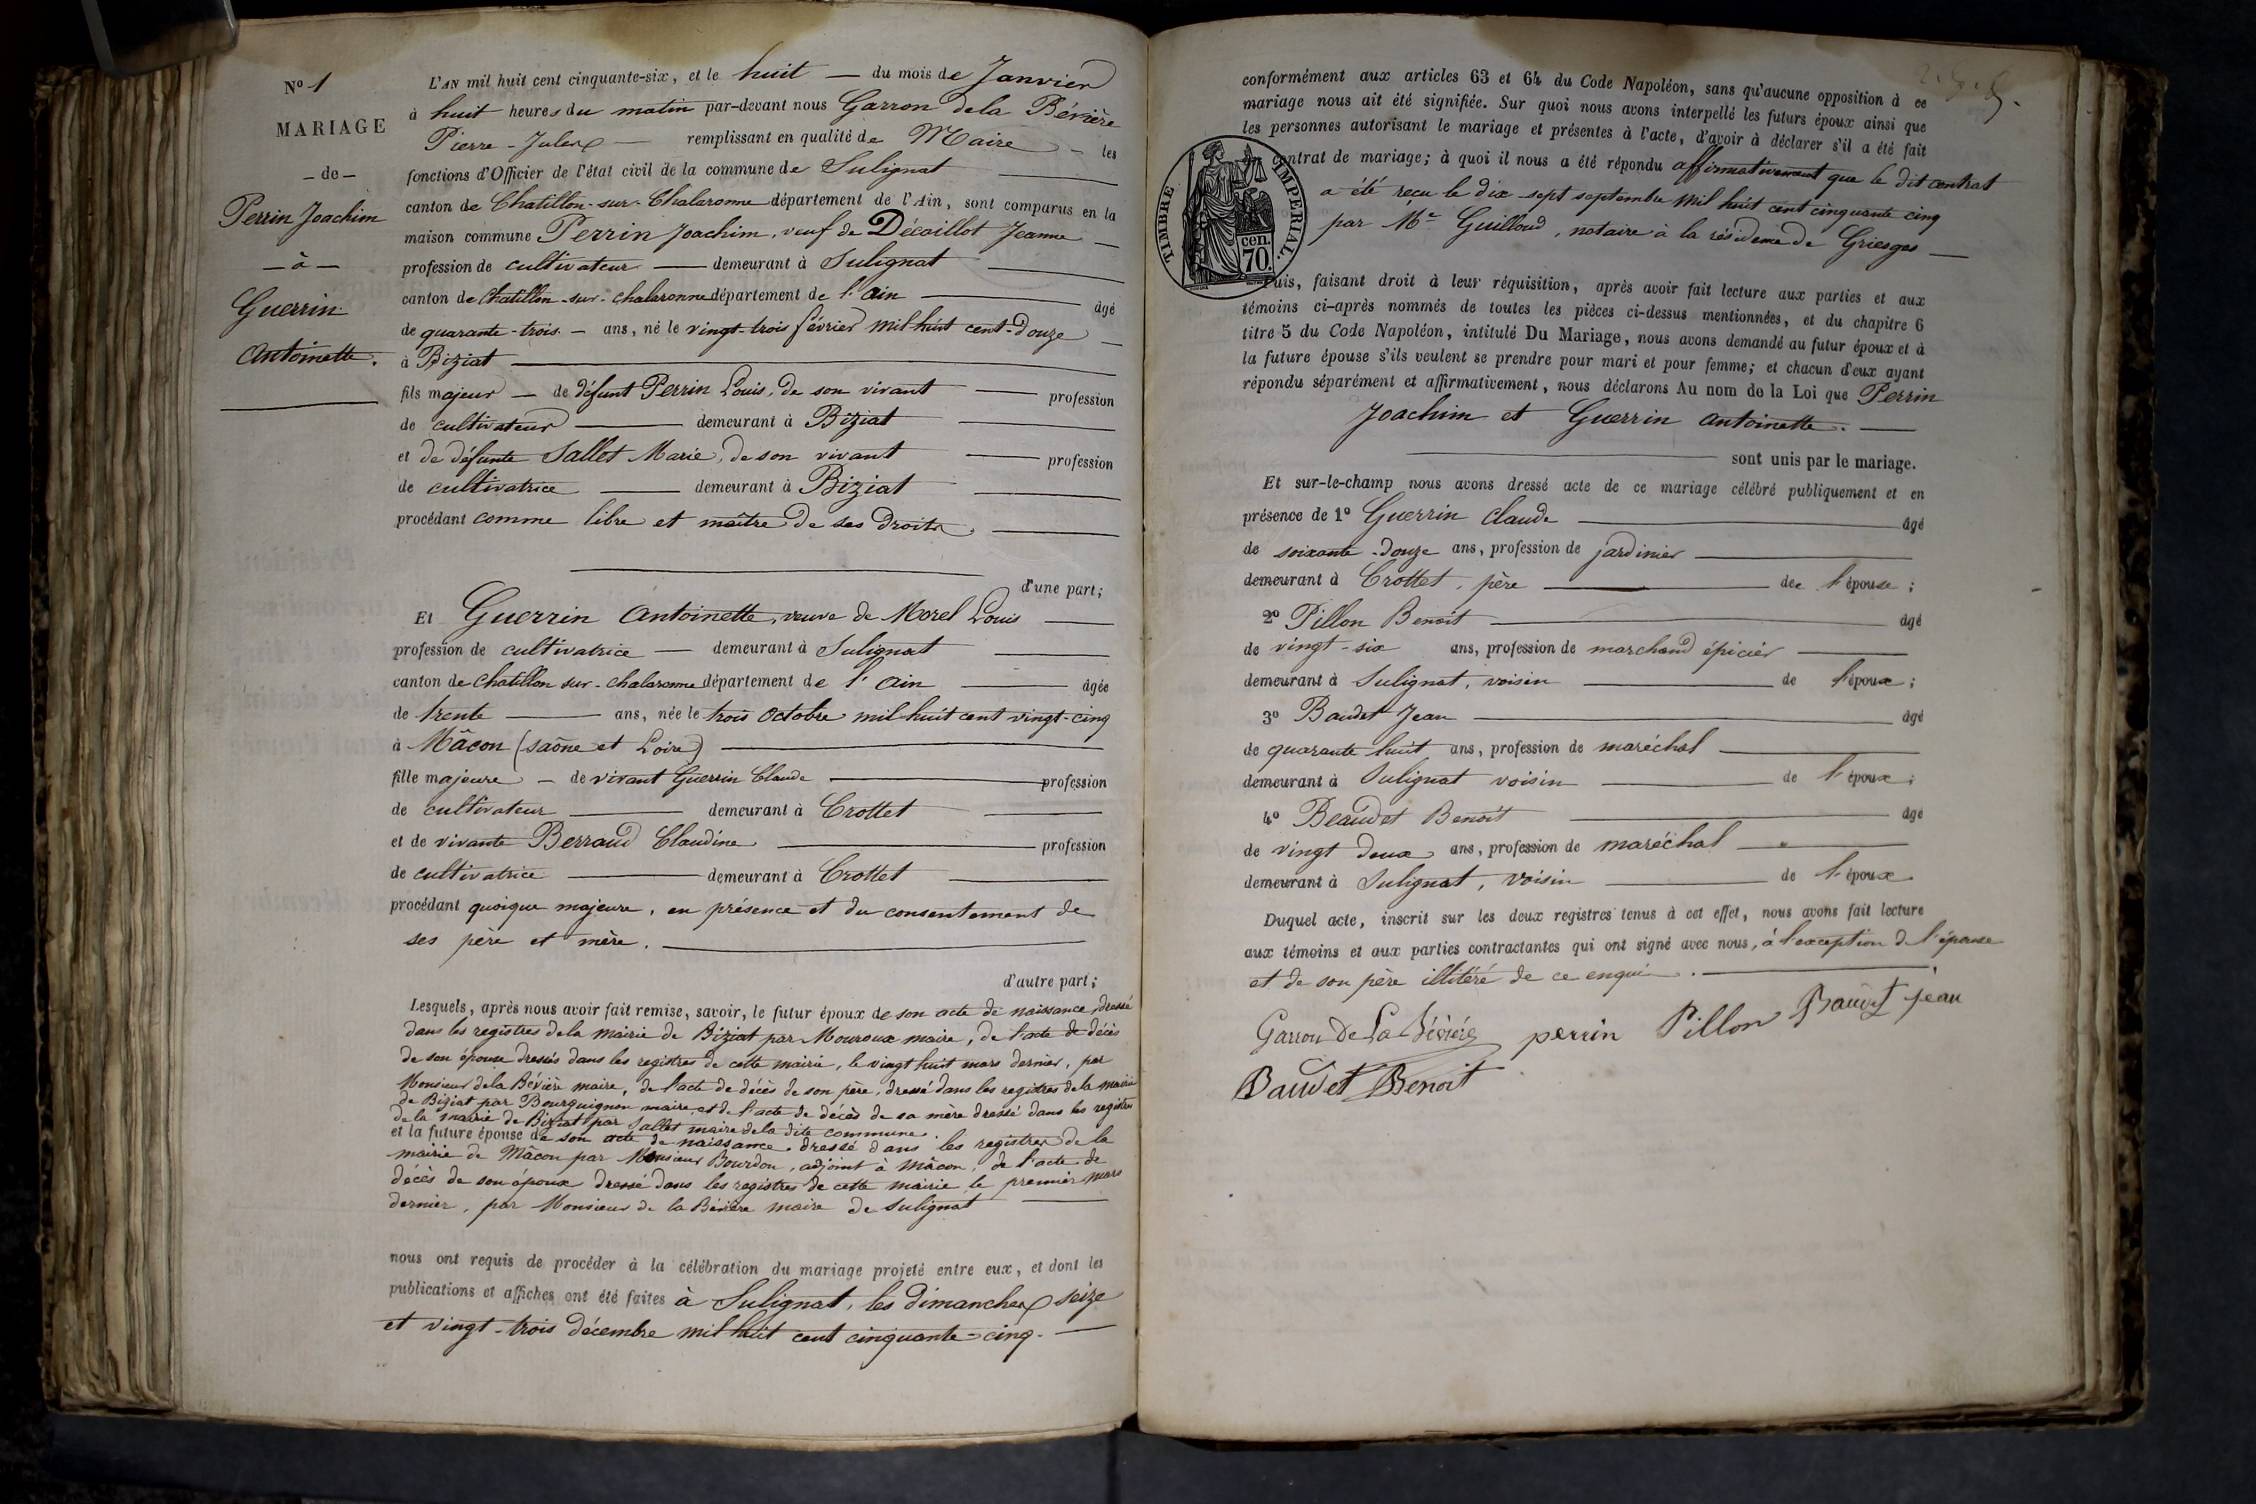 N° 1
MARIAGE
- de -
Perrin Joachim
- à -
Guerrin
Antoinette.
L'AN mil huit cent cinquante-six, et le huit — du mois de Janvier
à huit heures du matin par-devant nous Garron dela Bévière
Pierre-Jules — remplissant en qualité de Maire — les
fonctions d'Officier de l'état civil de la commune de Sulignat
canton de Chatillon-sur-Chalaronne département de l'Ain, sont comparus en la
maison commune Perrin Joachim, veuf de Décaillot Jeanne —
profession de cultivateur — demeurant à Sulignat
canton de Chatillon-sur-chalaronne département de l'Ain — âgé
de quarante-trois — ans, né le vingt-trois février mil huit cent-douze —
à Biziat
fils majeur — de défunt Perrin Louis, de son vivant — profession
de cultivateur — demeurant à Biziat
et de défunte Sallet Marie, de son vivant — profession
de cultivatrice — demeurant à Biziat
procédant comme libre et maître de ses droits.
d'une part;
Et Guerrin Antoinette, veuve de Morel Louis
profession de cultivatrice — demeurant à Sulignat
canton de Chatillon sur-chalaronne département de l'Ain — âgée
de trente — ans, née le trois Octobre mil huit cent vingt-cinq
à Mâcon (saône et Loire)
fille majeure — de vivant Guerrin Claude — profession
de cultivateur — demeurant à Crottet
et de vivante Berraud Claudine — profession
de cultivatrice — demeurant à Crottet
procédant quoique majeure, en présence et du consentement de
ses père et mère.
d'autre part;
Lesquels, après nous avoir fait remise, savoir, le futur époux de son acte de naissance, dressé
dans les registres dela mairie de Biziat par Mouroux maire, de l'acte de décès
de son épouse dressés dans les registres de cette mairie, le vingt huit mars dernier, par
Monsieur dela Bévière maire, de l'acte de décès de son père, dressé dans les registres de la mairie
de Biziat par Bourguignon maire, et de l'acte de décès de sa mère dressé dans les registres
de la mairie de Biziat par Sallet maire dela dite commune.
et la future épouse de son acte de naissance dressé dans les registres de la
mairie de Mâcon par Monsieur Bourdon, adjoint à Mâcon, de l'acte de
décès de son époux dressé dans les registres de cette mairie le premier mars
dernier, par Monsieur de la Bévière maire de Sulignat
nous ont requis de procéder à la célébration du mariage projeté entre eux, et dont les
publications et affiches ont été faites à Sulignat, les dimanches seize
et vingt-trois décembre mil huit cent cinquante-cinq.
conformément aux articles 63 et 64 du Code Napoléon, sans qu'aucune opposition à ce
mariage nous ait été signifiée. Sur quoi nous avons interpellé les futurs époux ainsi que
les personnes autorisant le mariage et présentes à l'acte, d'avoir à déclarer s'il a été fait
contrat de mariage; à quoi il nous a été répondu affirmativement que le dit contrat
a été reçu le dix sept septembre mil huit cent cinquante cinq
par Me Guilloud, notaire à la résidence de Grieges —
TIMBRE IMPERIAL.
cen.
70.
Puis, faisant droit à leur réquisition, après avoir fait lecture aux parties et aux
témoins ci-après nommés de toutes les pièces ci-dessus mentionnées, et du chapitre 6
titre 5 du Code Napoléon, intitulé Du Mariage, nous avons demandé au futur époux et à
la future épouse s'ils veulent se prendre pour mari et pour femme; et chacun d'eux ayant
répondu séparément et affirmativement, nous déclarons Au nom de la Loi que Perrin
Joachim et Guerrin Antoinette.
sont unis par le mariage.
Et sur-le-champ nous avons dressé acte de ce mariage célébré publiquement et en
présence de 1° Guerrin Claude — âgé
de soixante-douze ans, profession de jardinier
demeurant à Crottet, père — dee l'épouse;
2° Pillon Benoit — âgé
de vingt-six ans, profession de marchand épicier
demeurant à Sulignat, voisin — de l'époux;
3° Baudet Jean — âgé
de quarante huit ans, profession de maréchal
demeurant à Sulignat voisin — de l'époux;
4° Beaudet Benoit — âgé
de vingt deux ans, profession de maréchal
demeurant à Sulignat, voisin — de l'époux
Duquel acte, inscrit sur les deux registres tenus à cet effet, nous avons fait lecture
aux témoins et aux parties contractantes qui ont signé avec nous, à l'exception de l'épouse
et de son père illitéré de ce enquis.
Garron De La Bévière perrin Pillon Baudet jean
Baudet Benoit